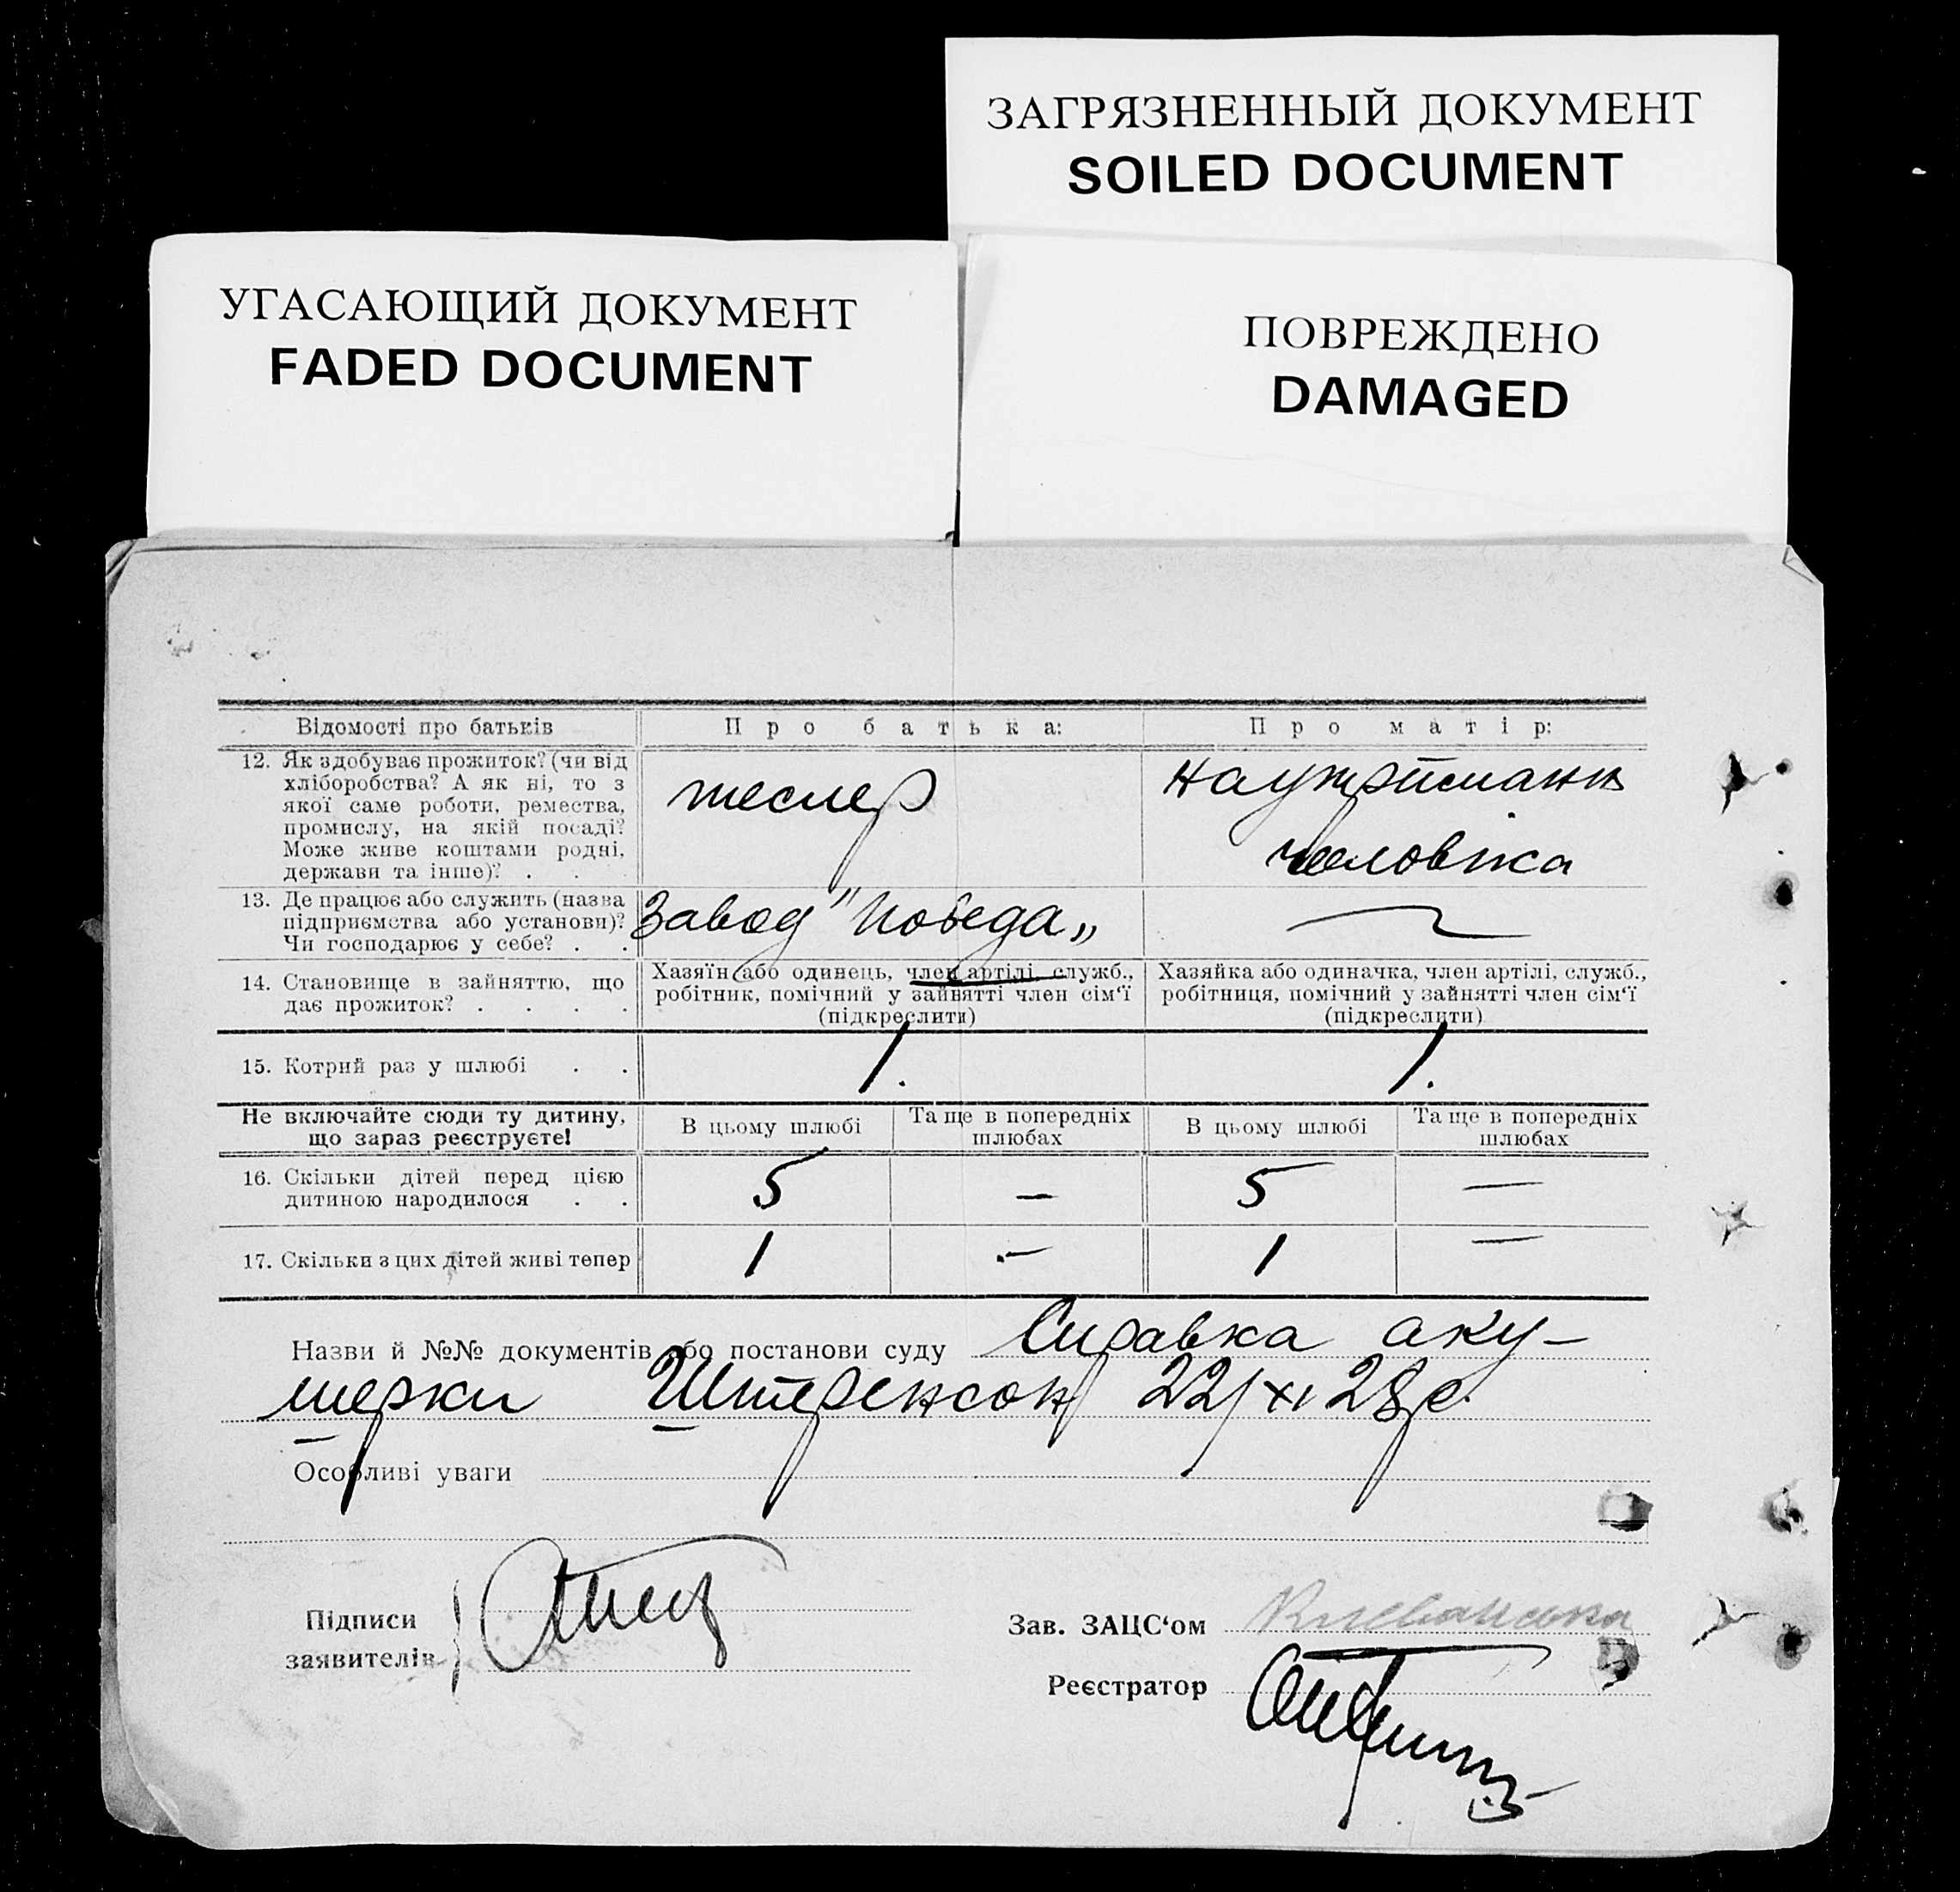 ЗАГРЯЗНЕННЫЙ ДОКУМЕНТ
SOILED DOCUMENT
УГАСАЮЩИЙ ДОКУМЕНТ
FADED DOCUMENT
ПОВРЕЖДЕНО
DAMAGED
Відомості про батьків
Про батька:
Про матір:
12. Як здобуває прожиток? (чи від
хліборобства? А як ні, то з
якої саме роботи, ремества,
промислу, на якій посаді?
Може живе коштами родні,
держави та інше)? . .
тесляр
на утриманні
чоловіка
13. Де працює або служить (назва
підприємства або установи)?
Чи господарює у себе? . .
Завод "Победа"
14. Становище в зайняттю, що
дає прожиток? . . . .
Хазяїн або одинець, член артілі, служб.,
робітник, помічний у зайнятті член сім'ї
(підкреслити)
Хазяйка або одиначка, член артілі, служб.,
робітниця, помічний у зайнятті член сім'ї
(підкреслити)
15. Котрий раз у шлюбі . .
1.
1.
Не включайте сюди ту дитину,
що зараз реєструєте!
В цьому шлюбі
Та ще в попередніх
шлюбах
В цьому шлюбі
Та ще в попередніх
шлюбах
16. Скільки дітей перед цією
дитиною народилося . .
5
—
5
—
17. Скільки з цих дітей живі тепер
1
—
1
—
Назви й №№ документів або постанови суду Справка аку-
шерки Штеренсон 22/XI 28 р.
Особливі уваги
Підписи
заявителів
Зав. ЗАЦС'ом
Реєстратор